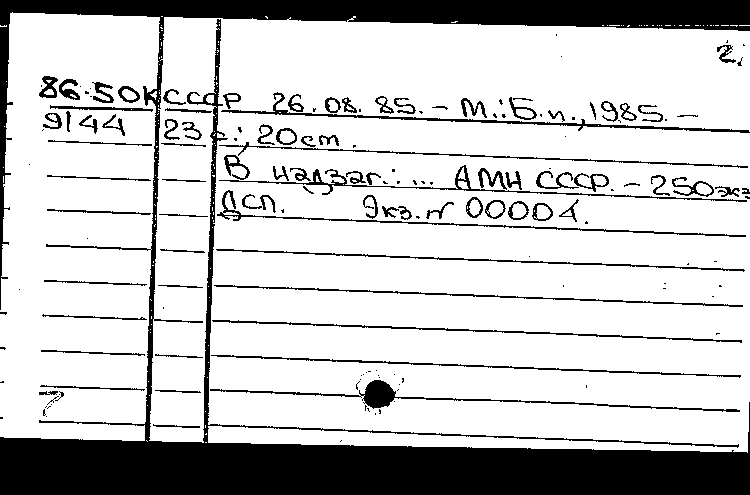 2.
86-50К СССР 26.08.85. – М.: Б.и., 1985. –
9144 23 с.; 20 cm.
В надзаг.: ... АМН СССР. – 250 экз
ДСП. Экз. № 00001.